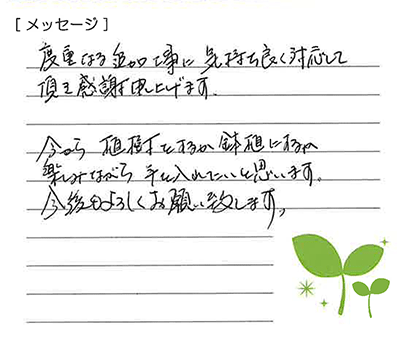 [メッセージ]
度重なる追加工事に気持ち良く対応して
頂き感謝申し上げます.
今から 植樹をするか鉢植にするか
楽しみながら 手を入れたいと思います。
今後もよろしくお願い致します。